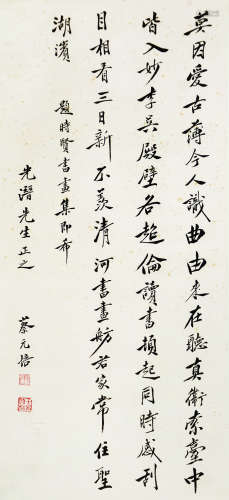 莫因愛古薄今人識曲由来在聽真衛索臺中
皆入妙李吳殿壁各超倫讀書頓起同時感刮
目相看三日新不羨清河書畫舫君家常住聖
湖濱 題時賢書畫集即希
潛先生正之 蔡元培